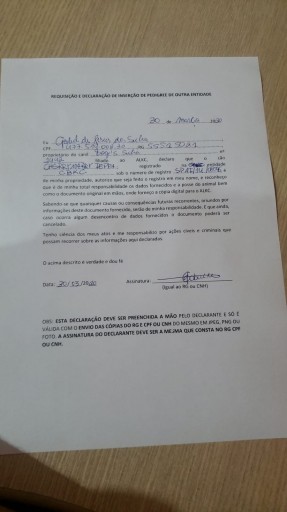 REQUISIÇÃO E DECLARAÇÃO DE INSERÇÃO DE PEDIGREE DE OUTRA ENTIDADE
30 de março 20
Eu
CPF
proprietário do canil nº
filiado ao ALKC, declaro que o cão
registrado na entidade
CBKC sob o número de registro e
de minha propriedade, autorizo que seja feito o registro em meu nome, e reconheço
que é de minha total responsabilidade os dados fornecidos e a posse do animal bem
como o documento original em mãos, onde forneço a cópia digital para o ALKC.
Sabendo se que quaisquer causas ou consequências futuras recorrentes, oriundos por
informações deste documento fornecido, serão de minha responsabilidade. E que ainda,
caso ocorra algum desmentidos de dados fornecidos o documento poderá ser
cancelado.
Tenho ciência dos meus atos e me responsabilizo por ações cíveis e criminais que
possam recorrer sobre as informações aqui declaradas.
O acima descrito é verdade e dou fé
Data: Assinatura:
(Igual ao RG ou CNH)
OBS: ESTA DECLARAÇÃO DEVE SER PREENCHIDA A MÃO PELO DECLARANTE E SÓ É
VÁLIDA COM O ENVIO DAS CÓPIAS DO RG E CPF OU CNH DO MESMO EM JPEG, PNG OU
FOTO. A ASSINATURA DO DECLARANTE DEVE SER A MESMA QUE CONSTA NO RG CPF
OU CNH.